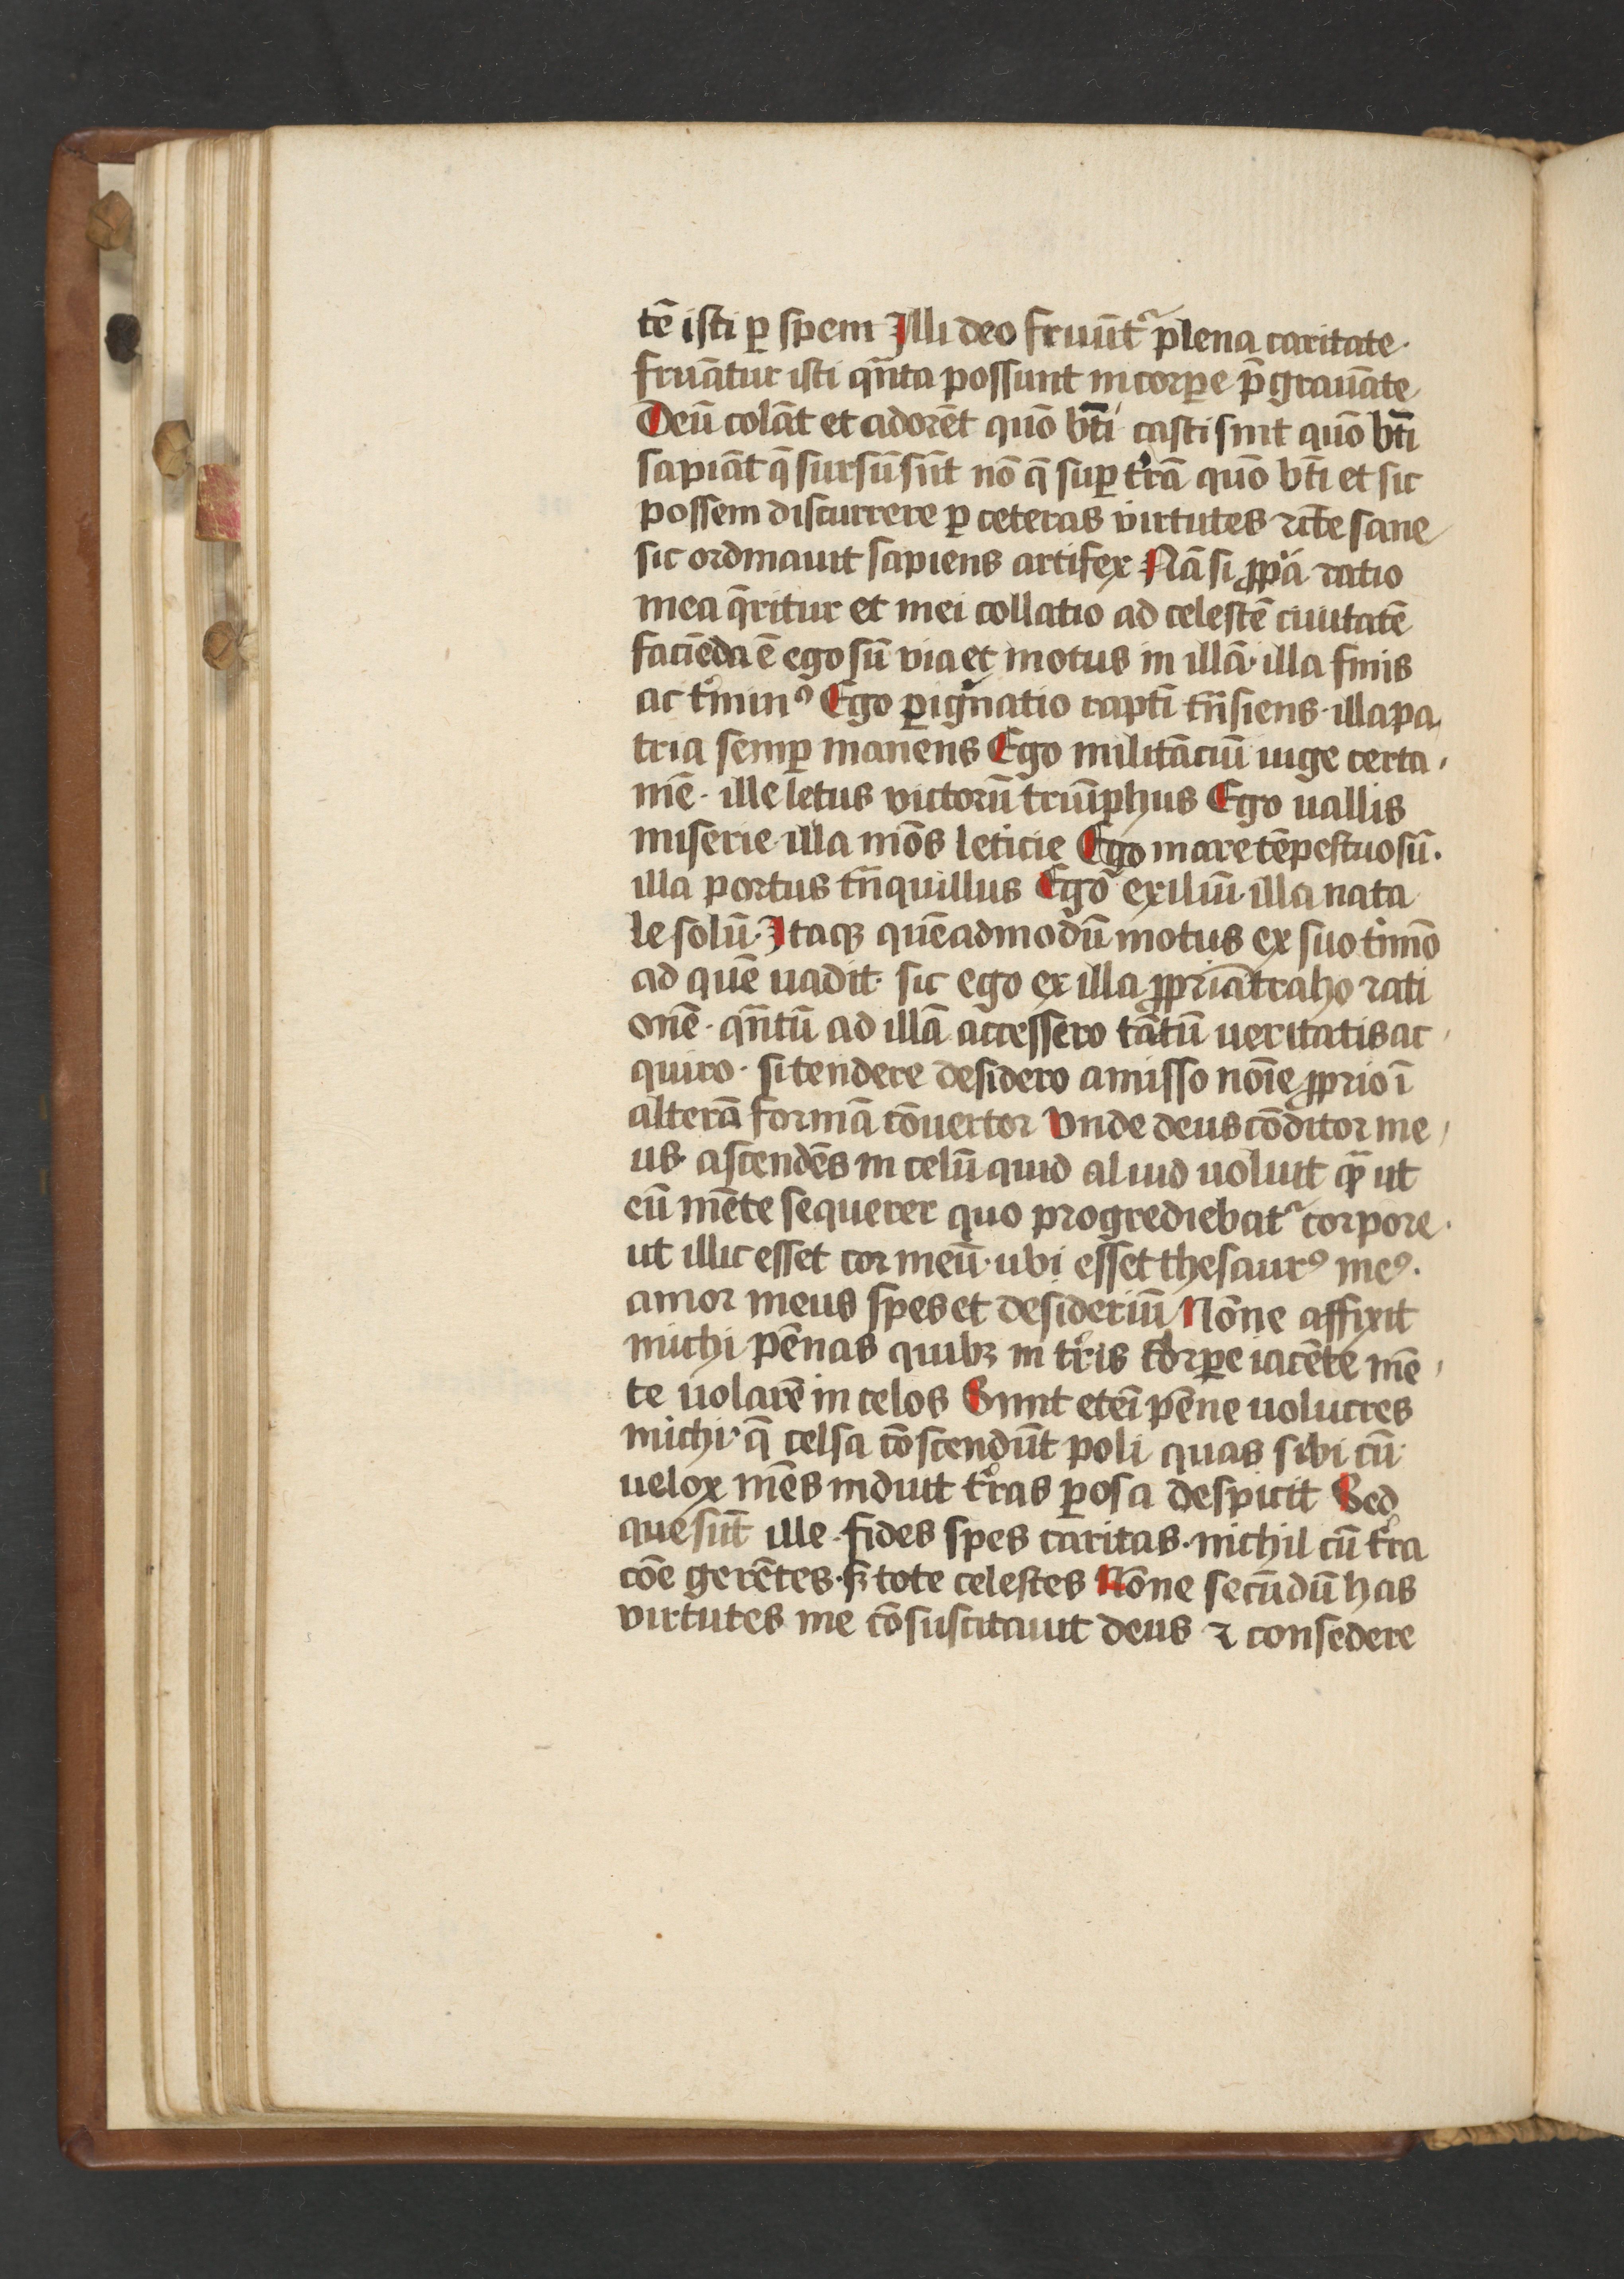 tē isti ꝑ spem Illi deo fruūtᷣ plena caritate·
fruātur isti qn̄ta possunt in corꝑe p̄grauāte
Deū colāt et adorēt quō bt̄i casti sint quō bt̄i
sapiāt q̄ sursū sūt nō q̄ suꝑ tr̄ā quō bt̄i et sic
possem discurrere ꝑ ceteras virtutes rite sane
sic ordinauit sapiens artifex Nā si ꝓpͥa ratio
mea q̄ritur et mei collatio ad celestē ciuitatē
faciēda ē ego sū via et motus in illā· illa finis
ac tͤminꝰ Ego ꝑigͥnatio raptī trn̄siens· illa pa
tria semꝑ manens Ego militāciū iuge certa
mē· ille letus victorū triūphus Ego uallis
miserie· illa mōs leticie Ego mare tēpestuosū·
illa portus trn̄quillus Ego exiliū· illa nata
le solū· Itaqꝫ quēadmodū motus ex suo tͤmīo
ad quē uadit· sic ego ex illa ꝓpriā traho rati
onē· qn̄tū ad illā accessero tātū ueritatis ac
quiro· si tendere desidero amisso noīe ꝓprio ī
alterā formā cōuertor Vnde deus cōditor me
us· ascendēs in celū quid aliud uoluit qͣ̄ ut
eū mēte sequerer quo progrediebatᷣ corpore·
ut illic esset cor meū· ubi esset thesaurꝰ meꝰ·
amor meus spes et desideriū Nōne affixit
michi pēnas quibꝫ in tͤris corꝑe iacēte mē
te uolarē in celos Sunt eteī pēne uolucres
michi· q̄ celsa cōscendūt poli quas sibi cū
uelox mēs induit tͤras ꝑosa despicit Sed
que sūt ille· fides spes caritas· nichil cū tͤra
cōe gerētes· sꝫ tote celestes Nōne secūdū has
virtutes me cōsuscitauit deus ⁊ consedere